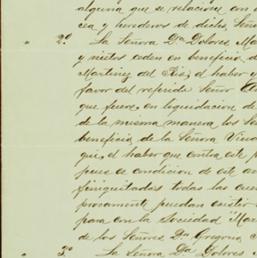 alguna que se relacione con
cea y herederos de dicho Seño
" 2º La Señora Dª Dolores Ma
y nietos ceden en beneficio d
Martinez del Rio, el haber y
favor del referido Señor
que fuere, en liquidacion de
de la misma manera los Se
beneficio de la Señora Viu
que, el haber que contra este p
pues es condicion de este a
finiquitadas todas las cuen
procamente puedan existir
para con la Sociedad "Mar
de los Señores Dn Gregorio
" 3º La Señora Dª Dolores